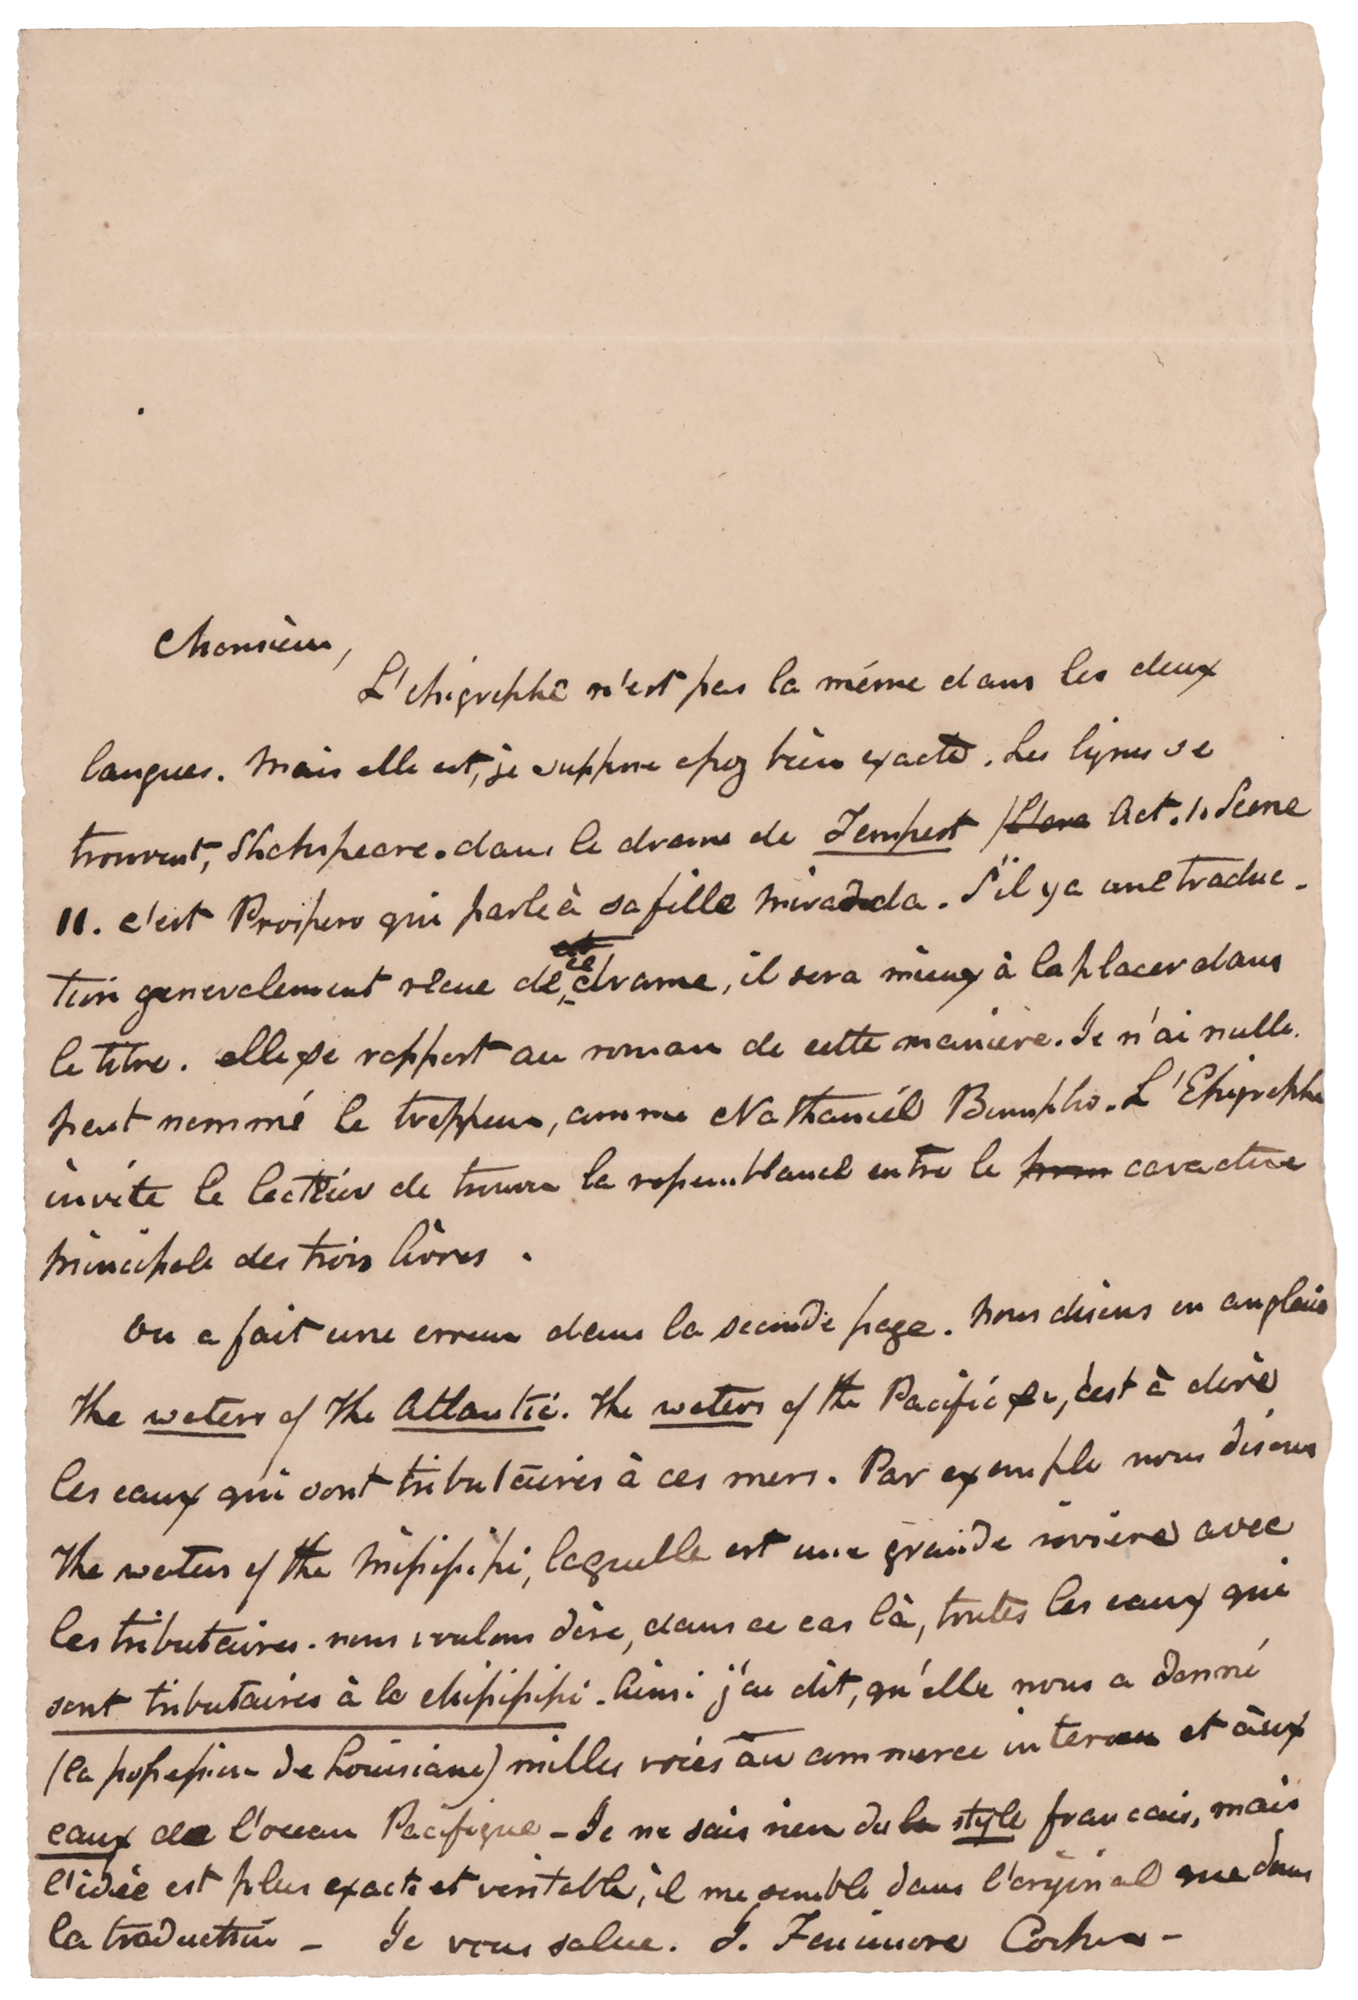 Monsieur,
L'epigraphe n'est pas la même dans les deux
langues. Mais elle est, je suppose assez bien exacte. Les lignes se
trouvent, Shakspeare. dans le drame de Tempest Act. 1. Scene
II. c'est Prospero qui parle à sa fille Miranda. S'il y a une traduc-
tion generalement recue de ce drame, il sera mieux à la placer dans
le titre. elle se rapport au roman de cette manière. Je n'ai nulle
part nommé le trappeur, comme Nathaniél Bumppo. L'Epigraphe
invite le lecteur de trouver la ressemblance entre le caractere
principale des trois livres.
On a fait une erreur dans la seconde page. Nous disons en anglais
the waters of the Atlantic. the waters of the Pacific &c, c'est à dire
les eaux qui sont tributaires à ces mers. Par exemple nous disons
the waters of the Missisipi, laquelle est une grande rivière avec
les tributaires. nous voulons dire, dans ce cas là, toutes les eaux qui
sont tributaires à le Missisipi. Ainsi j'ai dit, qu'elle nous a donné
(la possession de Louisiane) milles voies au commerce interieur et aux
eaux de l'ocean Pacifique - Je ne sais rien du style francais, mais
l'idée est plus exacte et veritable, il me semble dans l'original que dans
la traduction - Je vous salue. J. Fenimore Cooper -